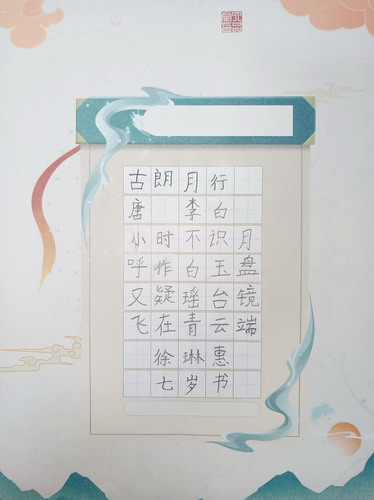 古朗月行
唐 李白
小时不识月
呼作白玉盘
又疑瑶台镜
飞在青云端
徐琳惠
七岁书